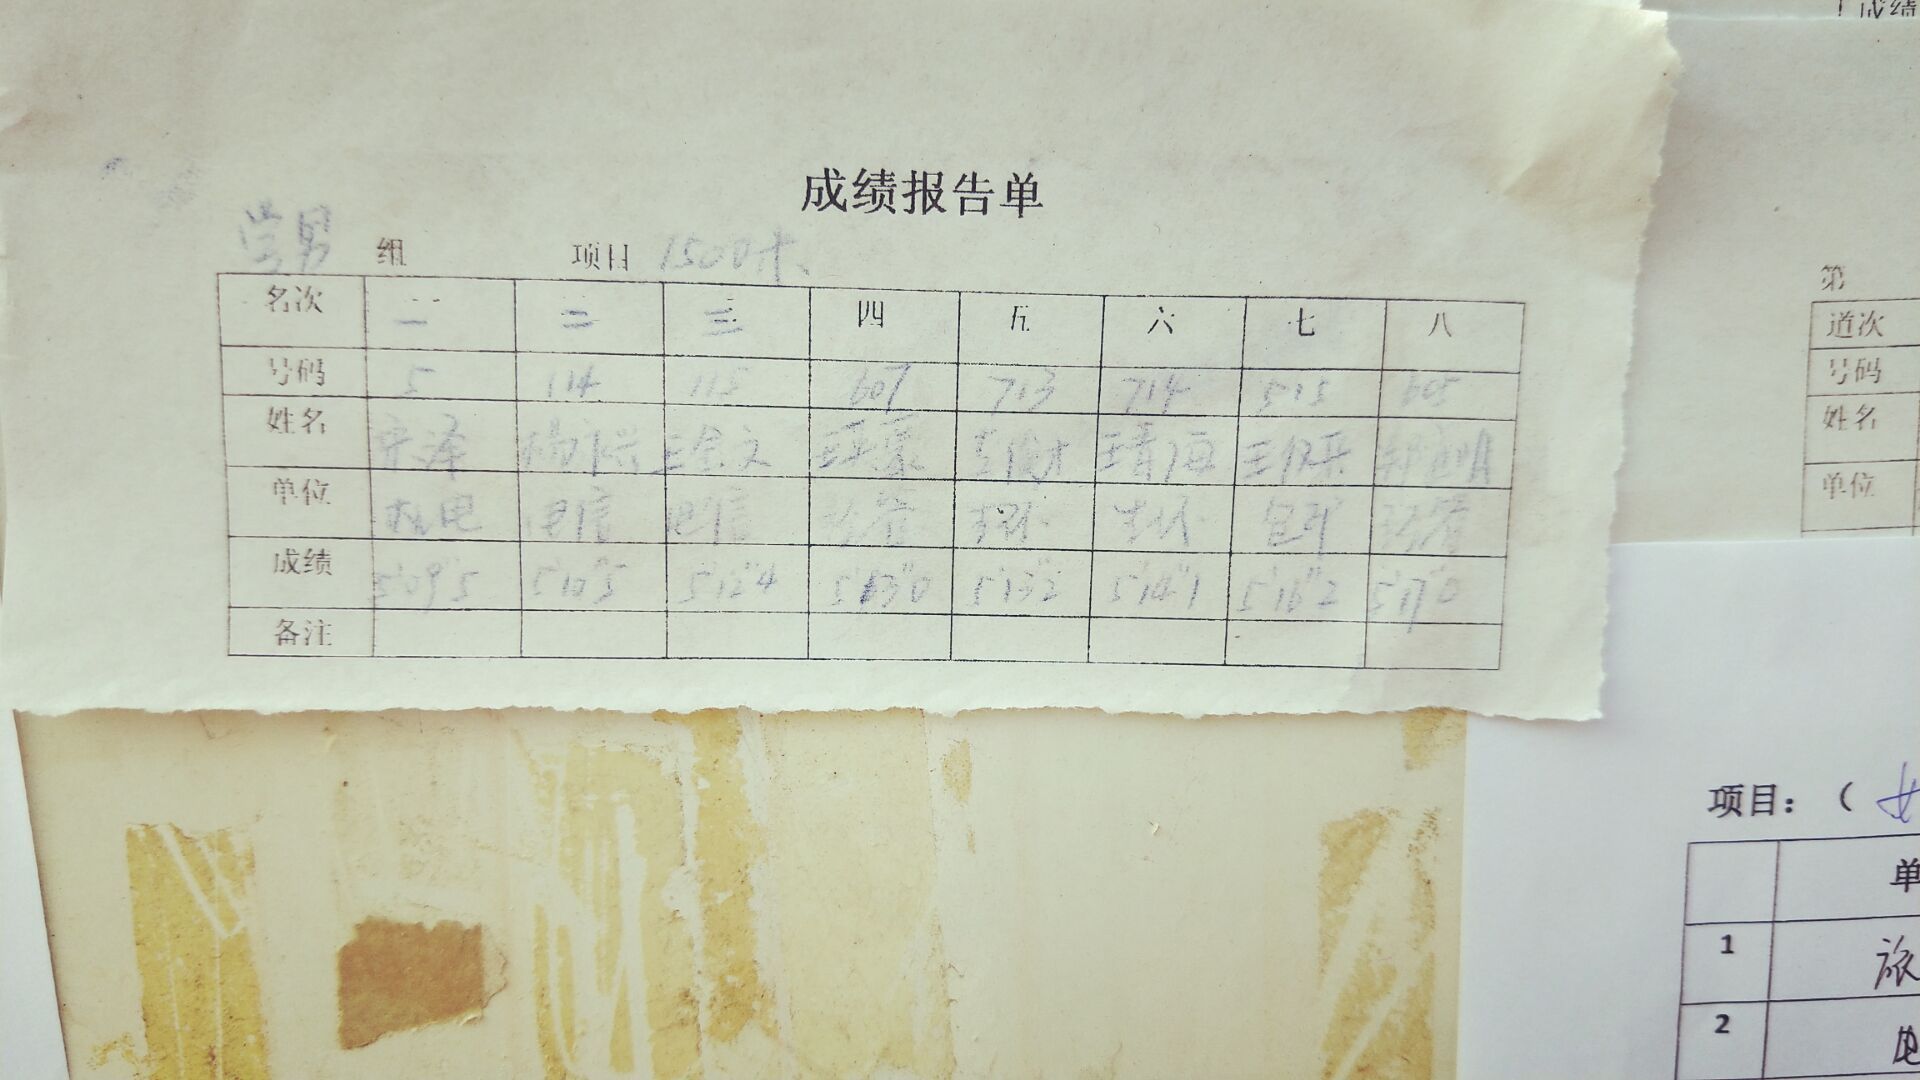 成绩
成绩报告单
学男 组 项目 1500米
名次 一 二 三 四 五 六 七 八
号码 5 114 115 607 713 714 515 605
姓名 宋泽 王金文 王靖海
单位 机电 电信 电信 生环 生环
成绩 5'09"5 5'10"5 5'12"4 5'13"0 5'13"2 5'14"1 5'16"2 5'17"0
备注
第
道次
号码
姓名
单位
项目：（ 女
单
1 旅
2 电